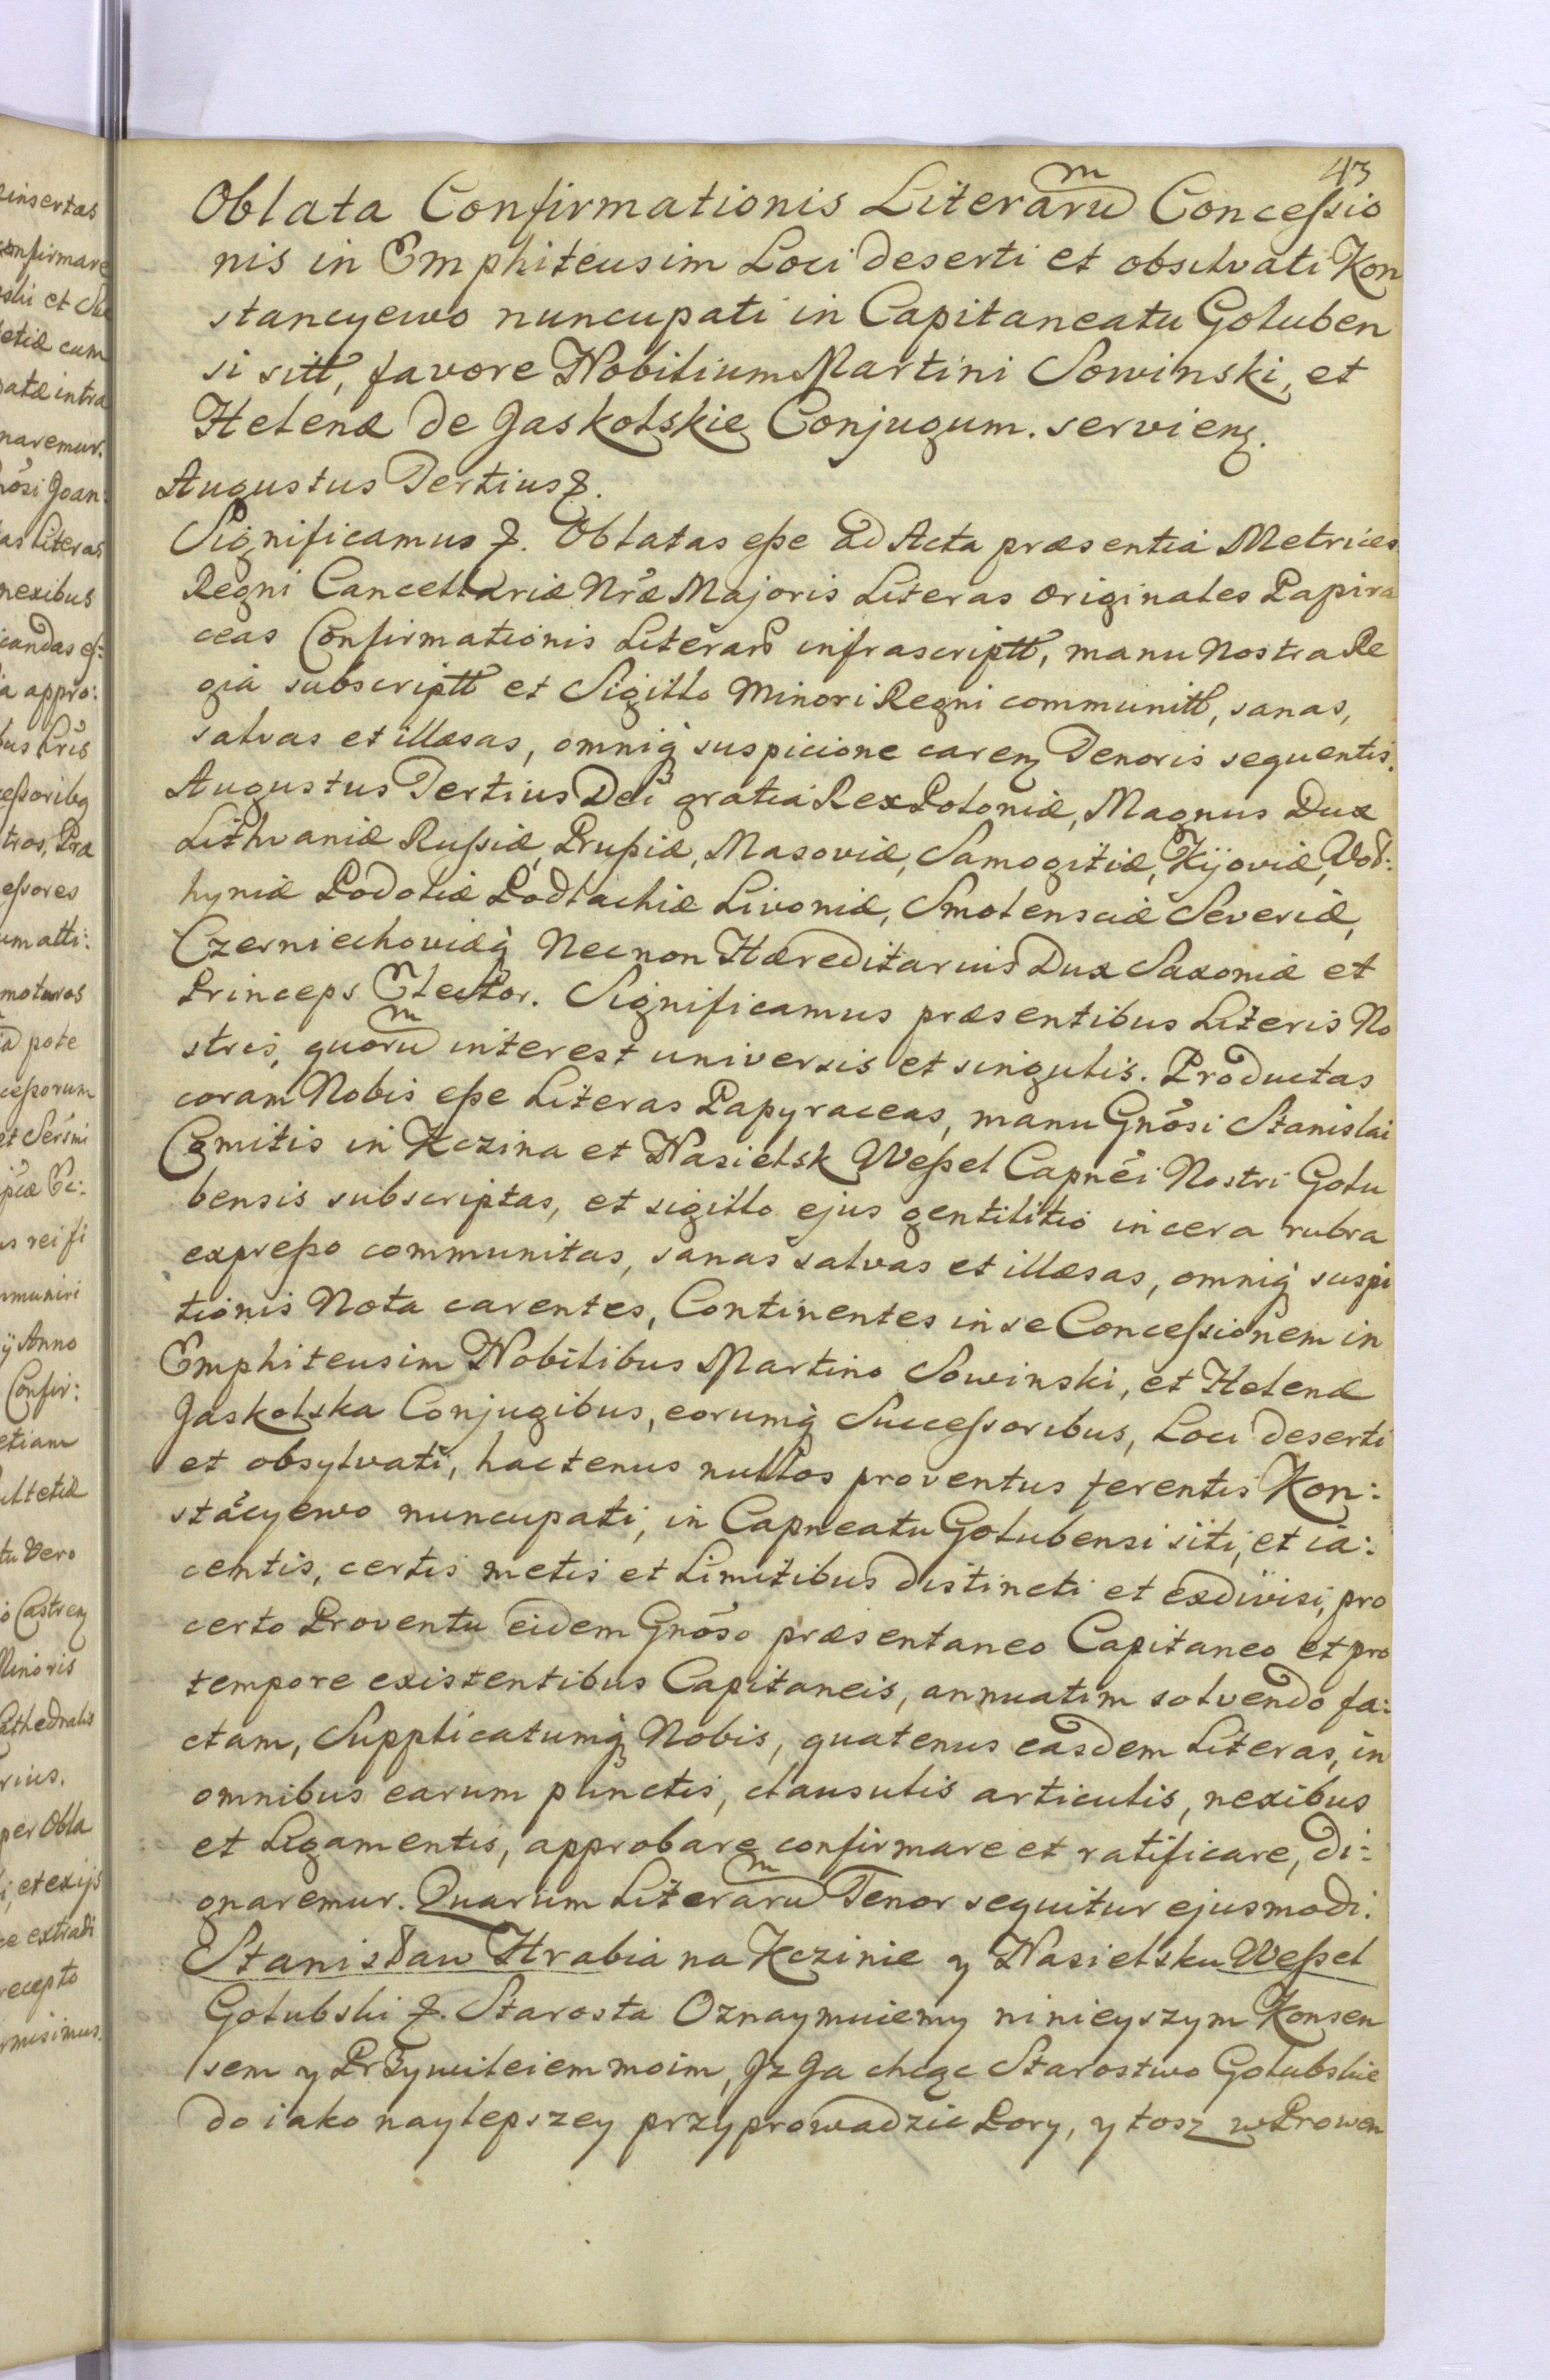 43
Oblata Confirmationis Literaru͠m Concessio
nis in Emphiteusim Loci deserti et obsilvati Kon
stancyewo nuncupati in Capitaneatu Goluben
si sitt, favore Nobilium Martini Sowinski, et
Helenæ de Jaskolskie Conjugum. servienz.
Augustus Tertius &.
Significamus &. Oblatas esse ad Acta præsentia Metrices
Regni Cancellariæ Nræ Majoris Literas originales Papira
ceas Confirmationis Literarū infrascriptt, manu Nostra Re
gia subscriptt et Sigillo Minori Regni communitt, sanas,
salvas et illæsas, omniq suspicione carenz Tenoris sequentis.
Augustus Tertius Dei gratia Rex Poloniæ, Magnus Dux
Lithvaniæ Russiæ, Prussiæ, Masoviæ, Samogitiæ, Kijoviæ, Vol:
hyniæ Podoliæ Podlachiæ Livoniæ, Smolensciæ Severiæ,
Czerniechoviæq Necnon Hæreditarius Dux Saxoniæ et
Princeps Elector. Significamus præsentibus Literis No
stris, quoru͠m interest universis et singulis. Productas
coram Nobis esse Literas Papyraceas, manu Gnosi Stanislai
Comitis in Kczina et Nasielsk Wessel Capnei Nostri Golu
bensis subscriptas, et sigillo ejus gentilitio in cera rubra
expresso communitas, sanas salvas et illæsas, omniq suspi
tionis Nota carentes, Continentes in se Concessionem in
Emphiteusim Nobilibus Martino Sowinski, et Helenæ
Jaskolska Conjugibus, eorumq Successoribus, Loci deserti
et obsylvati, hactenus nullos proventus ferentis Kon:
stācyewo nuncupati, in Capneatu Golubensi siti, et ia:
centis, certis metis et Limitibus distincti et exdivisi, pro
certo Proventu eidem Gnoso præsentaneo Capitaneo et pro
tempore existentibus Capitaneis, annuatim solvendo fa:
ctam, Supplicatumq Nobis, quatenus easdem Literas, in
omnibus earum punctis, clausulis articulis, nexibus
et Ligamentis, approbare confirmare et ratificare, di:
gnaremur. Quarum Literaru͠m Tenor sequitur ejusmodi.
Stanisław Hrabia na Kczinie y Nasielsku Wessel
Golubski &. Starosta Oznaymuiemy ninieyszym Konsen
sem y Przywileiem moim, Jz Ja chcąc Starostwo Golubskie
do iako naylepszey przyprowadzic Pory, y tosz w Prowen